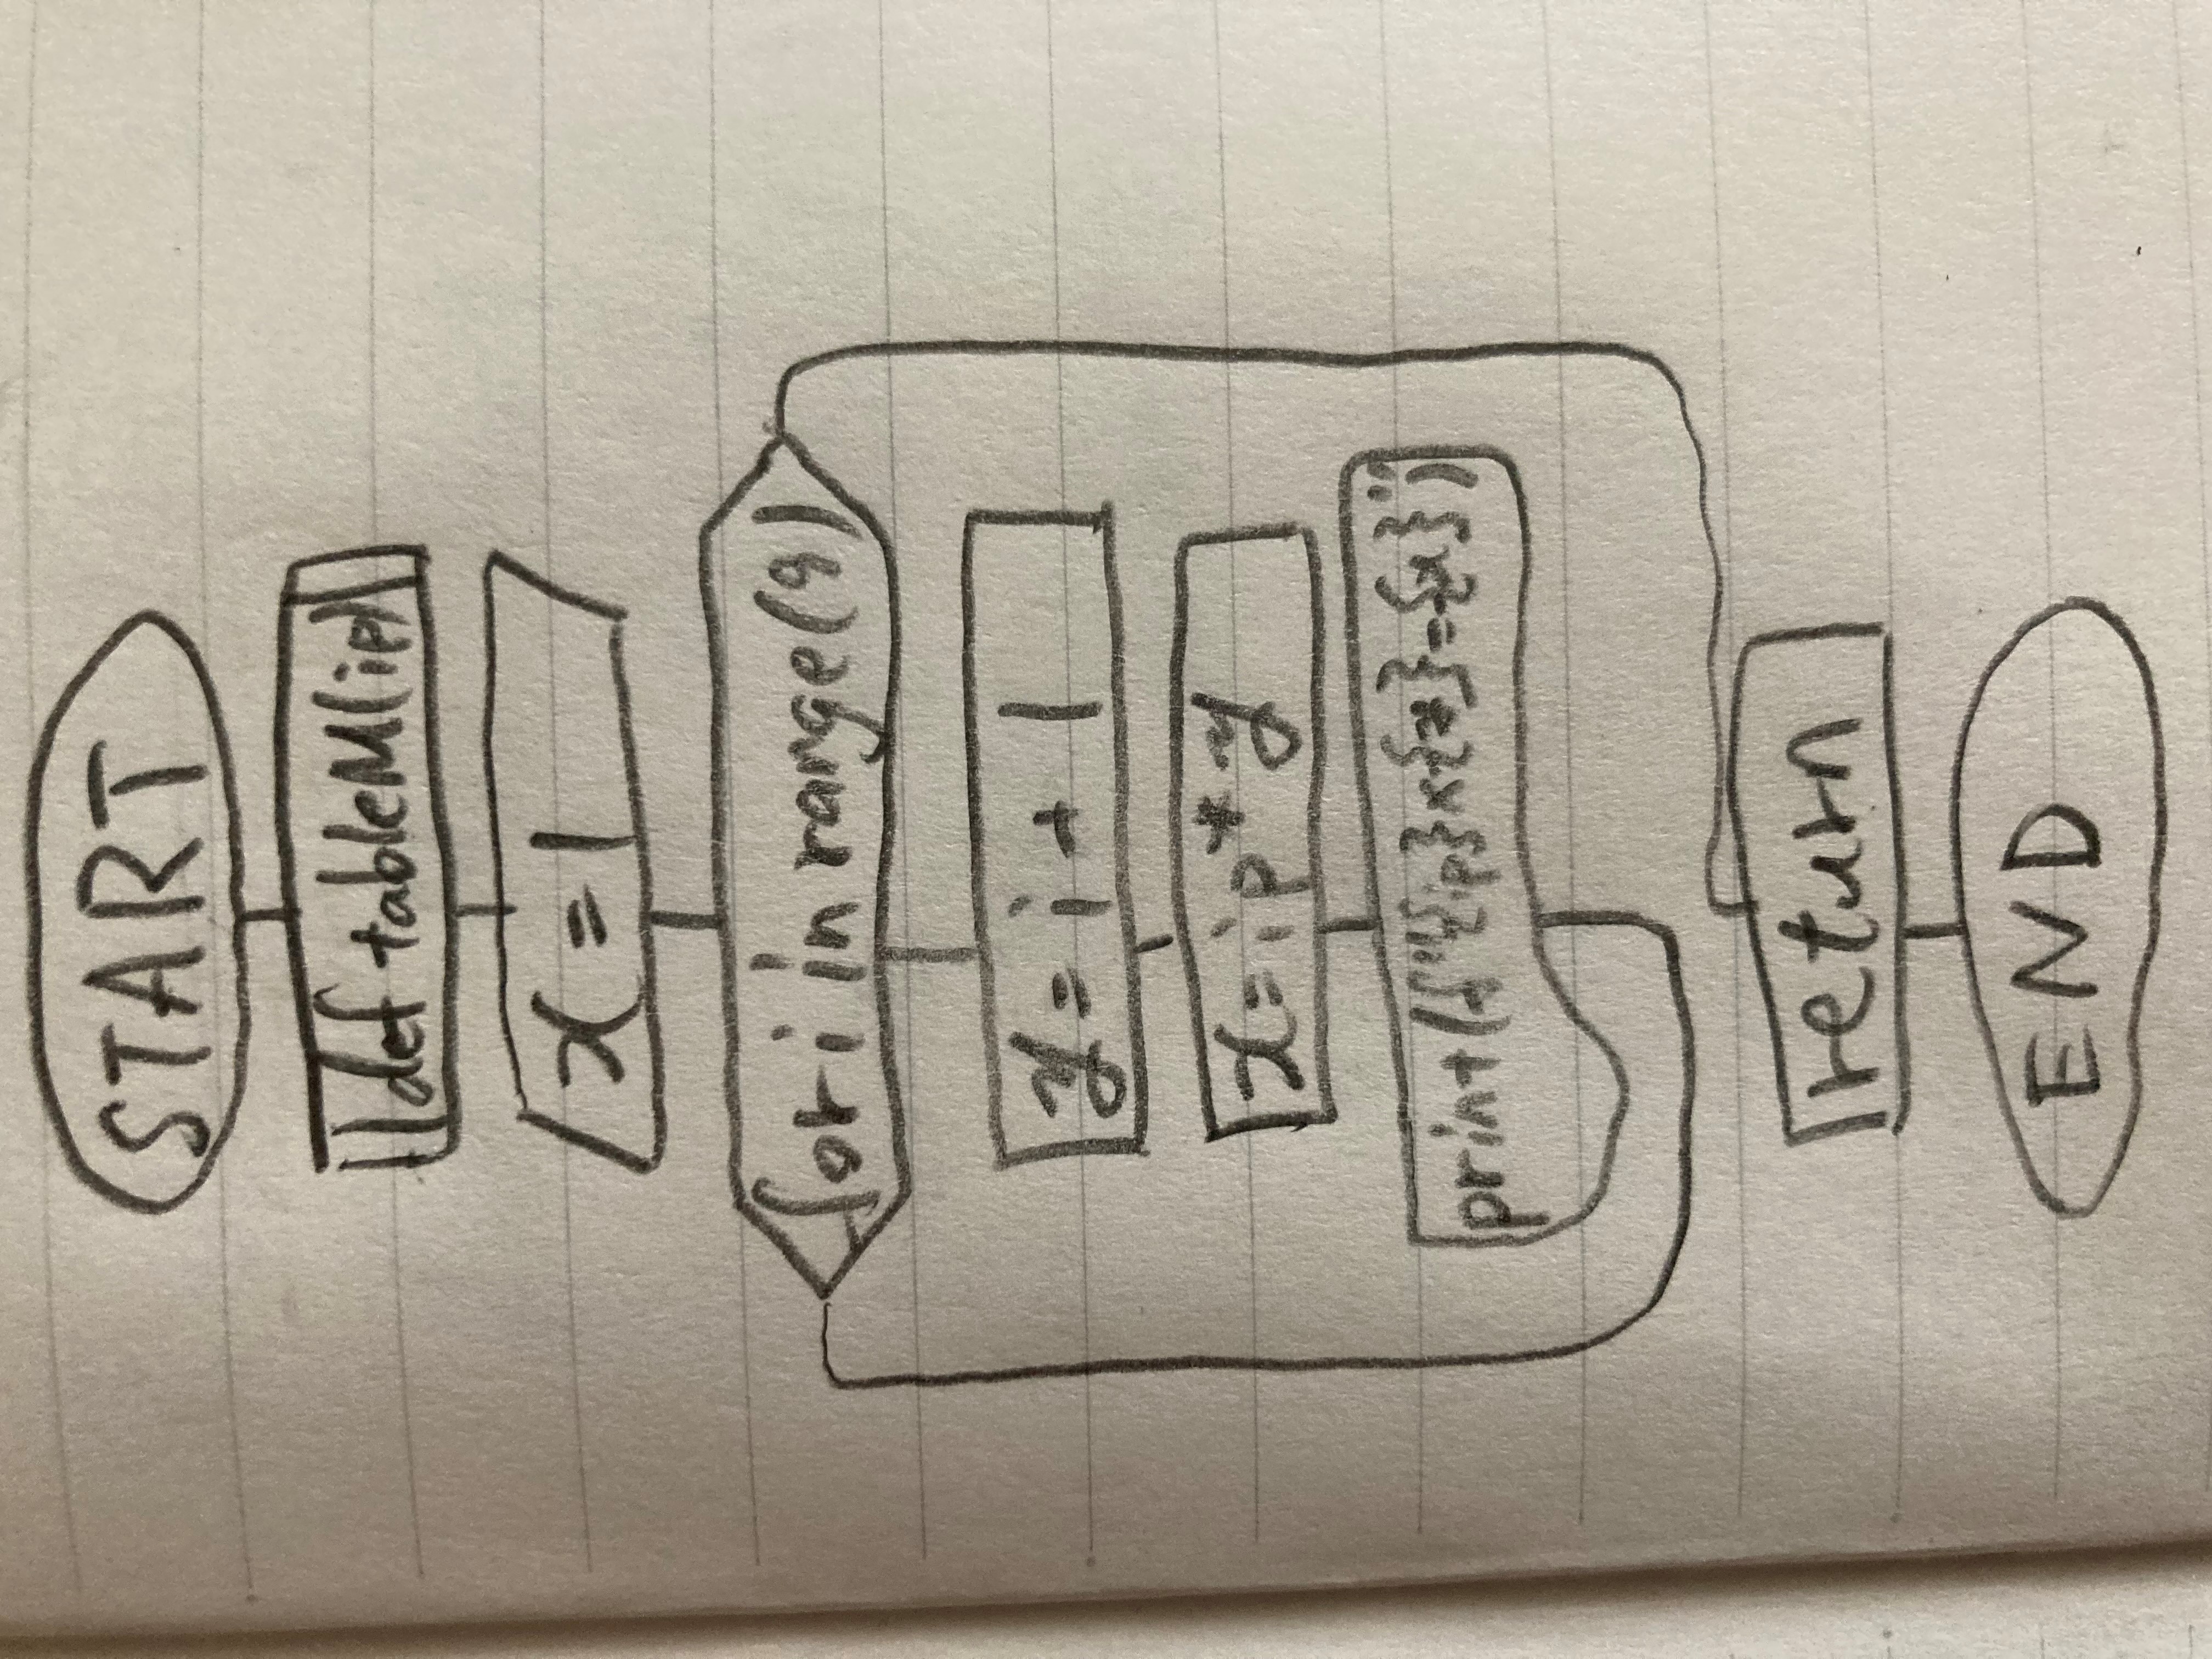 START
def tableM(ip)
x = 1
for i in range(9)
y = i + 1
x = ip * y
print(f"{ip}x{y}={x}")
return
END